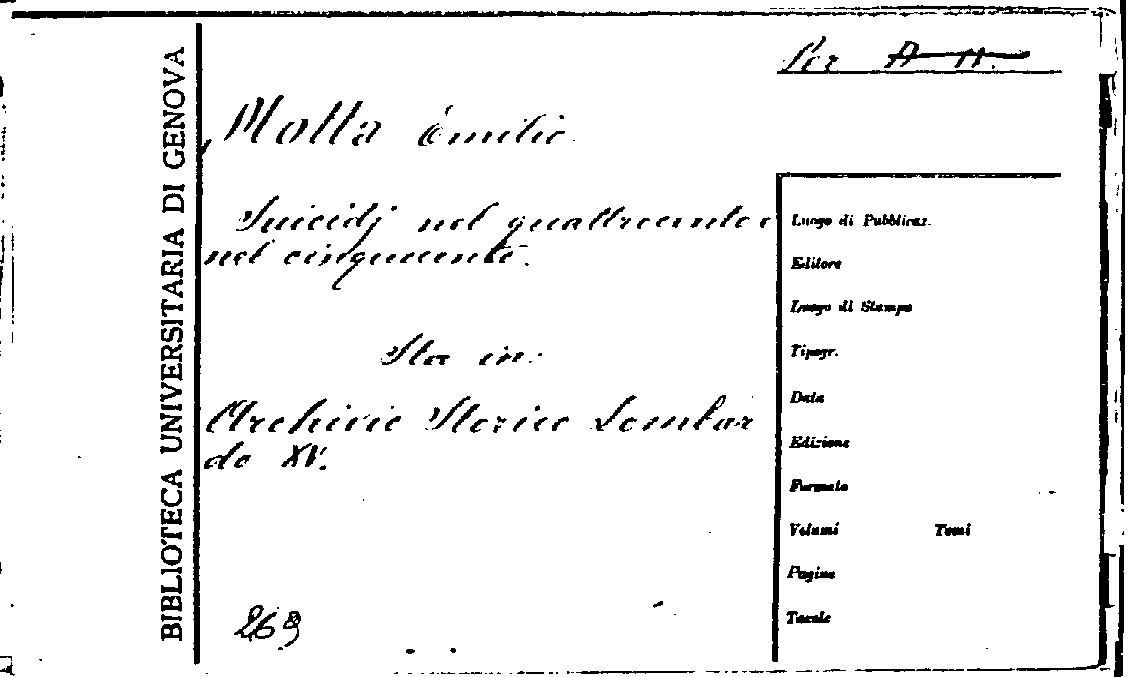 BIBLIOTECA UNIVERSITARIA DI GENOVA
Per A. H.
Motta Emilio
Suicidj nel quattrocento e
nel cinquecento.
Sta in:
Archivio Storico Lombar
do XV.
269
Luogo di Pubblicaz.
Editore
Luogo di Stampa
Tipogr.
Data
Edizione
Formato
Volumi Tomi
Pagine
Tavole